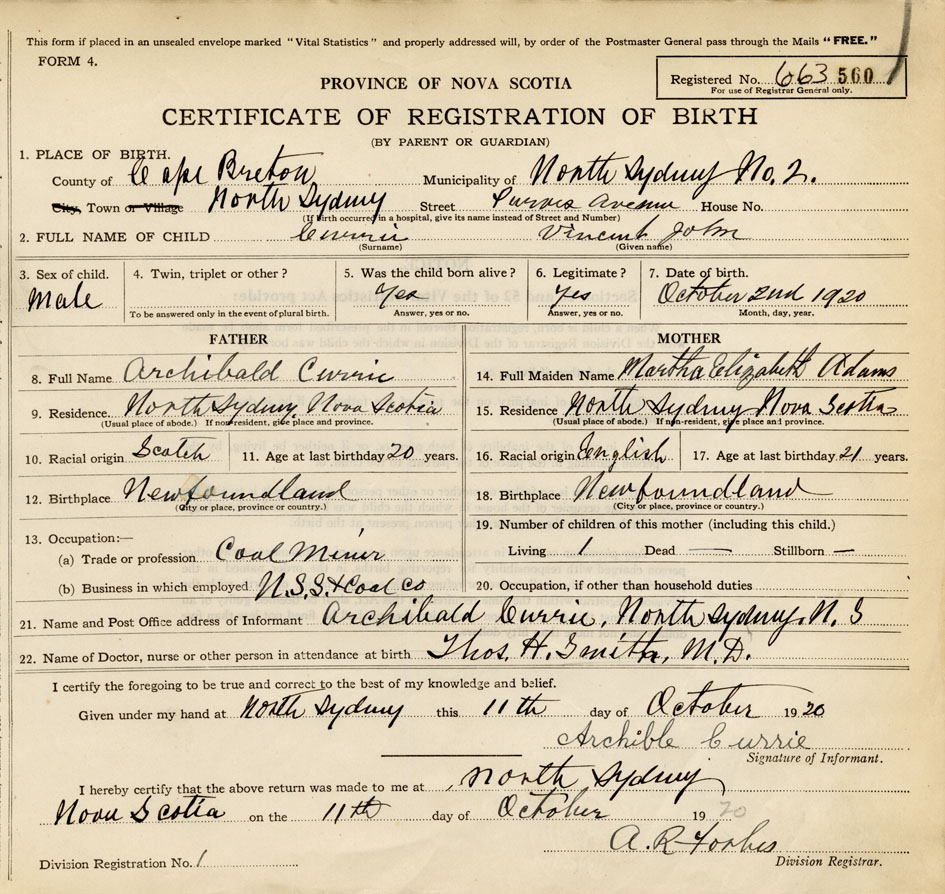 This form if placed in an unsealed envelope marked "Vital Statistics" and properly addressed will, by order of the Postmaster General pass through the Mails "FREE."
FORM 4.
Registered No. 663 560
For use of Registrar General only.
PROVINCE OF NOVA SCOTIA
CERTIFICATE OF REGISTRATION OF BIRTH
(BY PARENT OR GUARDIAN)
1. PLACE OF BIRTH.
County of Cape Breton Municipality of North Sydney No. 2.
City, Town or Village North Sydney Street Purves Avenue House No.
(If birth occurred in a hospital, give its name instead of Street and Number)
2. FULL NAME OF CHILD Currie Vincent John
(Surname) (Given name)
3. Sex of child. 4. Twin, triplet or other? 5. Was the child born alive? 6. Legitimate? 7. Date of birth.
Male Yes Yes October 2nd 1920
To be answered only in the event of plural birth. Answer, yes or no. Answer, yes or no. Month, day, year.
FATHER MOTHER
8. Full Name Archibald Currie 14. Full Maiden Name Martha Elizabeth Adams
9. Residence. North Sydney, Nova Scotia 15. Residence North Sydney Nova Scotia
(Usual place of abode.) If non-resident, give place and province. (Usual place of abode.) If non-resident, give place and province.
10. Racial origin Scotch 11. Age at last birthday 20 years. 16. Racial origin English 17. Age at last birthday 21 years.
12. Birthplace Newfoundland 18. Birthplace Newfoundland
(City or place, province or country.) (City or place, province or country.)
13. Occupation:— 19. Number of children of this mother (including this child.)
(a) Trade or profession Coal Miner Living 1 Dead — Stillborn —
(b) Business in which employed N.S.S. & Coal Co 20. Occupation, if other than household duties
21. Name and Post Office address of Informant Archibald Currie, North Sydney, N. S
22. Name of Doctor, nurse or other person in attendance at birth Thos. H. Smith, M.D.
I certify the foregoing to be true and correct to the best of my knowledge and belief.
Given under my hand at North Sydney this 11th day of October 1920
Archible Currie
Signature of Informant.
I hereby certify that the above return was made to me at North Sydney
Nova Scotia on the 11th day of October 1920
A. R. Forbes
Division Registration No. 1 Division Registrar.